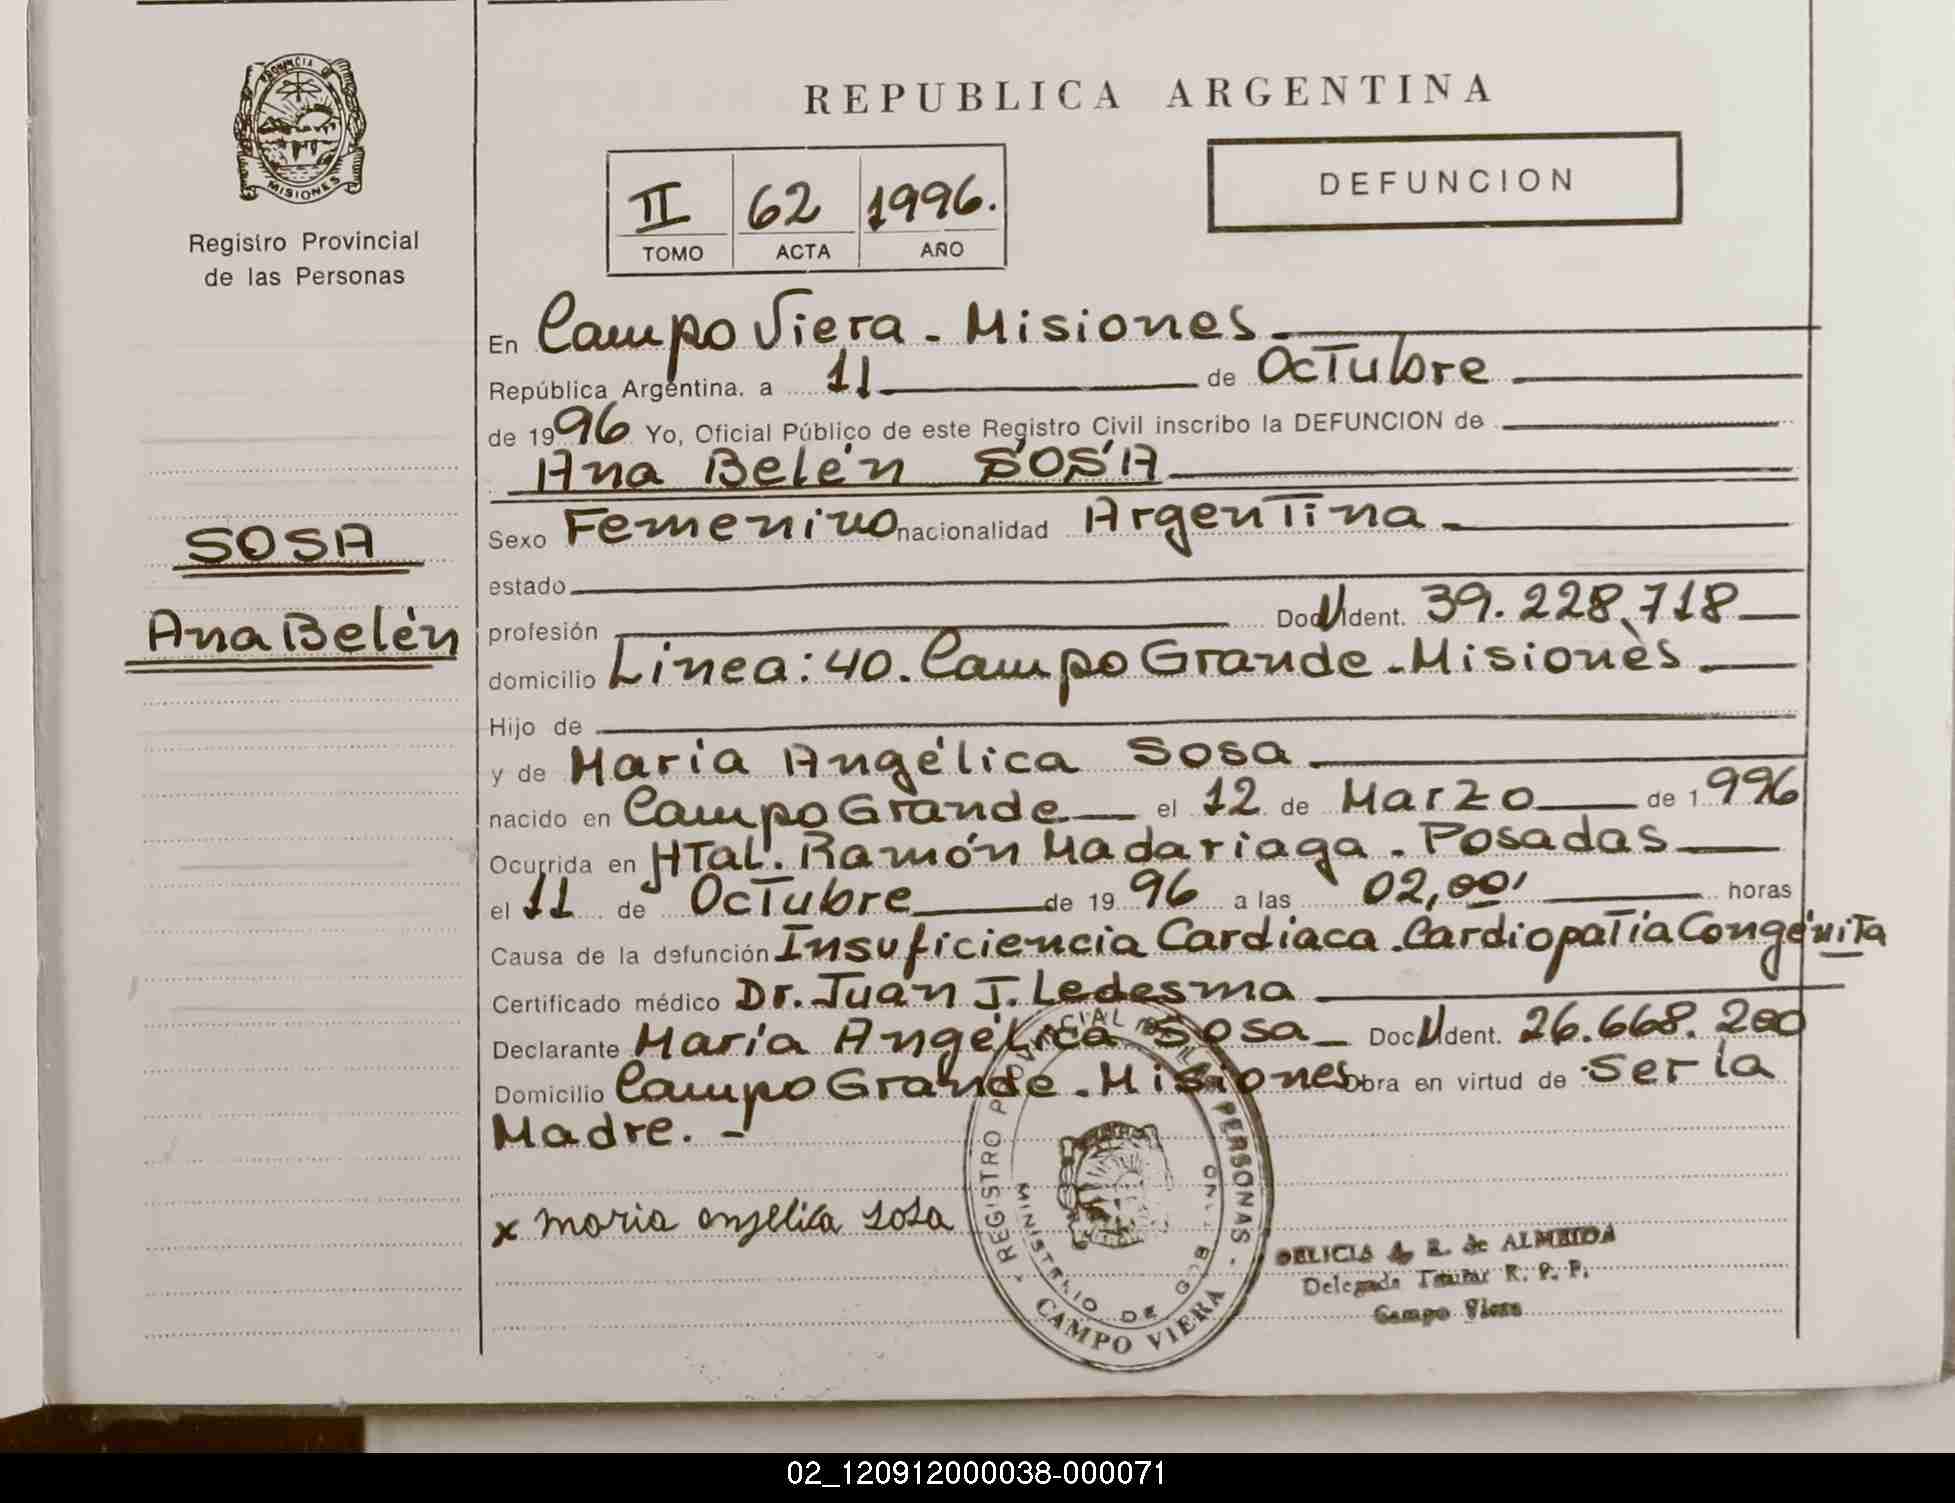 PROVINCIA DE
MISIONES
Registro Provincial
de las Personas
REPUBLICA ARGENTINA
II 62 1996.
TOMO ACTA AÑO
DEFUNCION
En Campo Viera - Misiones
República Argentina. a 11 de Octubre
de 1996 Yo, Oficial Público de este Registro Civil inscribo la DEFUNCION de
Ana Belén SOSA
SOSA
Ana Belén
Sexo Femenino nacionalidad Argentina
estado
profesión Doc. N ident. 39.228.718
domicilio Linea: 40. Campo Grande - Misiones
Hijo de
y de María Angélica Sosa
nacido en Campo Grande el 12 de Marzo de 1996
Ocurrida en HTal. Ramón Madariaga - Posadas
el 11 de Octubre de 1996 a las 02,00' horas
Causa de la defunción Insuficiencia Cardíaca. Cardiopatía Congénita
Certificado médico Dr. Juan J. Ledesma
Declarante María Angélica Sosa Doc N ident. 26.668.200
Domicilio Campo Grande - Misiones Obra en virtud de Ser la
Madre. -
x maria anjelica sosa
REGISTRO PROVINCIAL DE LAS PERSONAS
MINISTERIO DE GOBIERNO
CAMPO VIERA
DELICIA R. de ALMEIDA
Delegada Titular R. P. P.
Campo Viera
02_120912000038-000071